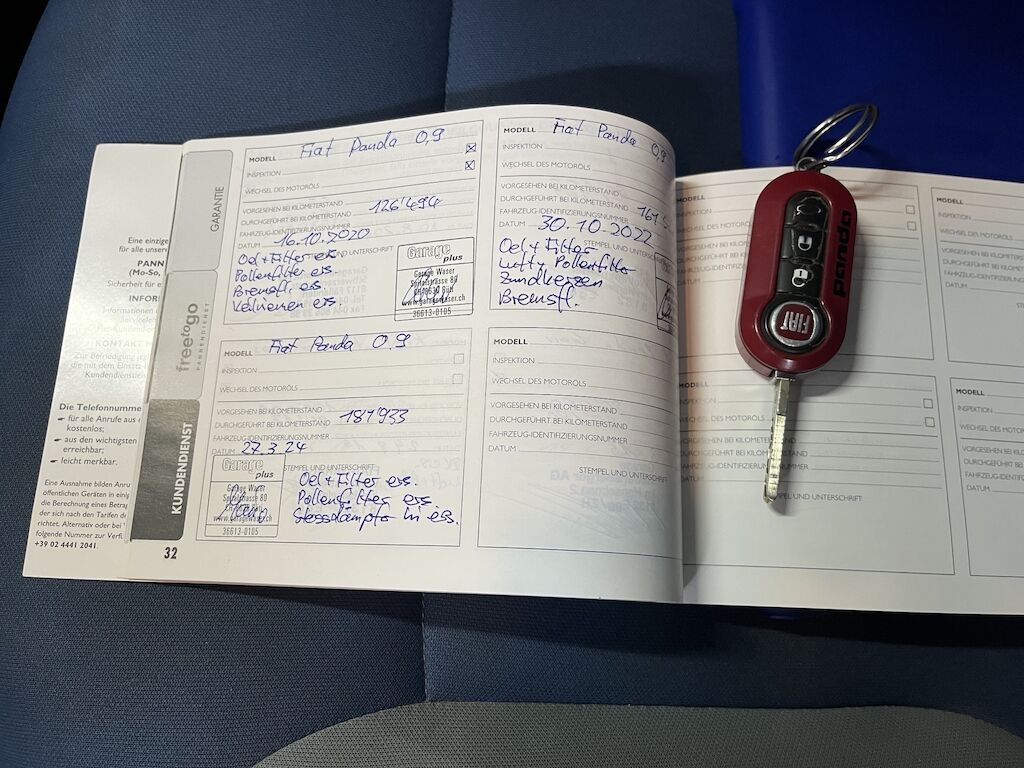 Eine einzige
für alle unsere
PANN
(Mo-So,
Sicherheit für e
INFORM
Informationen
Servicele
KONTAKT
Zur Befriedigung
die mit dem Einsatz
Kundendienstle
Die Telefonnumme
für alle Anrufe aus
kostenlos;
aus den wichtigsten
erreichbar;
leicht merkbar.
Eine Ausnahme bilden Anru
öffentlichen Geräten in einig
die Berechnung eines Betrag
sich nach den Tarifen de
richtet. Alternativ oder bei
folgende Nummer zur Verfü
+39 02 4441 2041.
GARANTIE
freetogo
PANNENDIENST
KUNDENDIENST
32
MODELL Fiat Panda 0,9
INSPEKTION
WECHSEL DES MOTORÖLS
VORGESEHEN BEI KILOMETERSTAND
DURCHGEFÜHRT BEI KILOMETERSTAND 126'494
FAHRZEUG-IDENTIFIZIERUNGSNUMMER
DATUM 16.10.2020
UND UNTERSCHRIFT
Oel + Filter ers.
Pollenfilter ers.
Bremsfl. ers.
Keilriemen ers.
Garage
plus
Garage Waser
36613-0105
MODELL Fiat Panda 0,9
INSPEKTION
WECHSEL DES MOTORÖLS
VORGESEHEN BEI KILOMETERSTAND
DURCHGEFÜHRT BEI KILOMETERSTAND
FAHRZEUG-IDENTIFIZIERUNGSNUMMER
DATUM 30.10.2022
STEMPEL UND UNTERSCHRIFT
Oel + Filter
Luft + Pollenfilter
Zündkerzen
Bremsfl.
Fiat Panda 0.9
MODELL
INSPEKTION
WECHSEL DES MOTORÖLS
VORGESEHEN BEI KILOMETERSTAND
DURCHGEFÜHRT BEI KILOMETERSTAND 181'933
FAHRZEUG-IDENTIFIZIERUNGSNUMMER
DATUM 27.3.24
STEMPEL UND UNTERSCHRIFT
Garage
plus
Garage Waser
36613-0105
Oel + Filter ers.
Pollenfilter ers
Stossdämpfer hi ers.
MODELL
INSPEKTION
WECHSEL DES MOTORÖLS
VORGESEHEN BEI KILOMETERSTAND
DURCHGEFÜHRT BEI KILOMETERSTAND
FAHRZEUG-IDENTIFIZIERUNGSNUMMER
DATUM
STEMPEL UND UNTERSCHRIFT
MODELL
INSPEKTION
WECHSEL DES MOTORÖLS
VORGESEHEN BEI KILOMETERS
DURCHGEFÜHRT BEI KILOME
FAHRZEUG-IDENTIFIZIERUN
DATUM
MODELL
INSPEKTION
WECHSEL DES MOTORÖL
VORGESEHEN BEI KILOM
DURCHGEFÜHRT BEI KIL
FAHRZEUG-IDENTIFIZIE
DATUM
MODELL
INSPEKTION
WECHSEL DES MOTORÖLS
VORGESEHEN BEI KILOMETERS
DURCHGEFÜHRT BEI KILOMET
FAHRZEUG-IDENTIFIZIERUNG
DATUM
STEMPEL UND UNTERSCHRIFT
MODELL
INSPEKTION
WECHSEL DES MOTO
VORGESEHEN BEI KILO
DURCHGEFÜHRT BEI
FAHRZEUG-IDENTIFIZ
DATUM
panda
FIAT